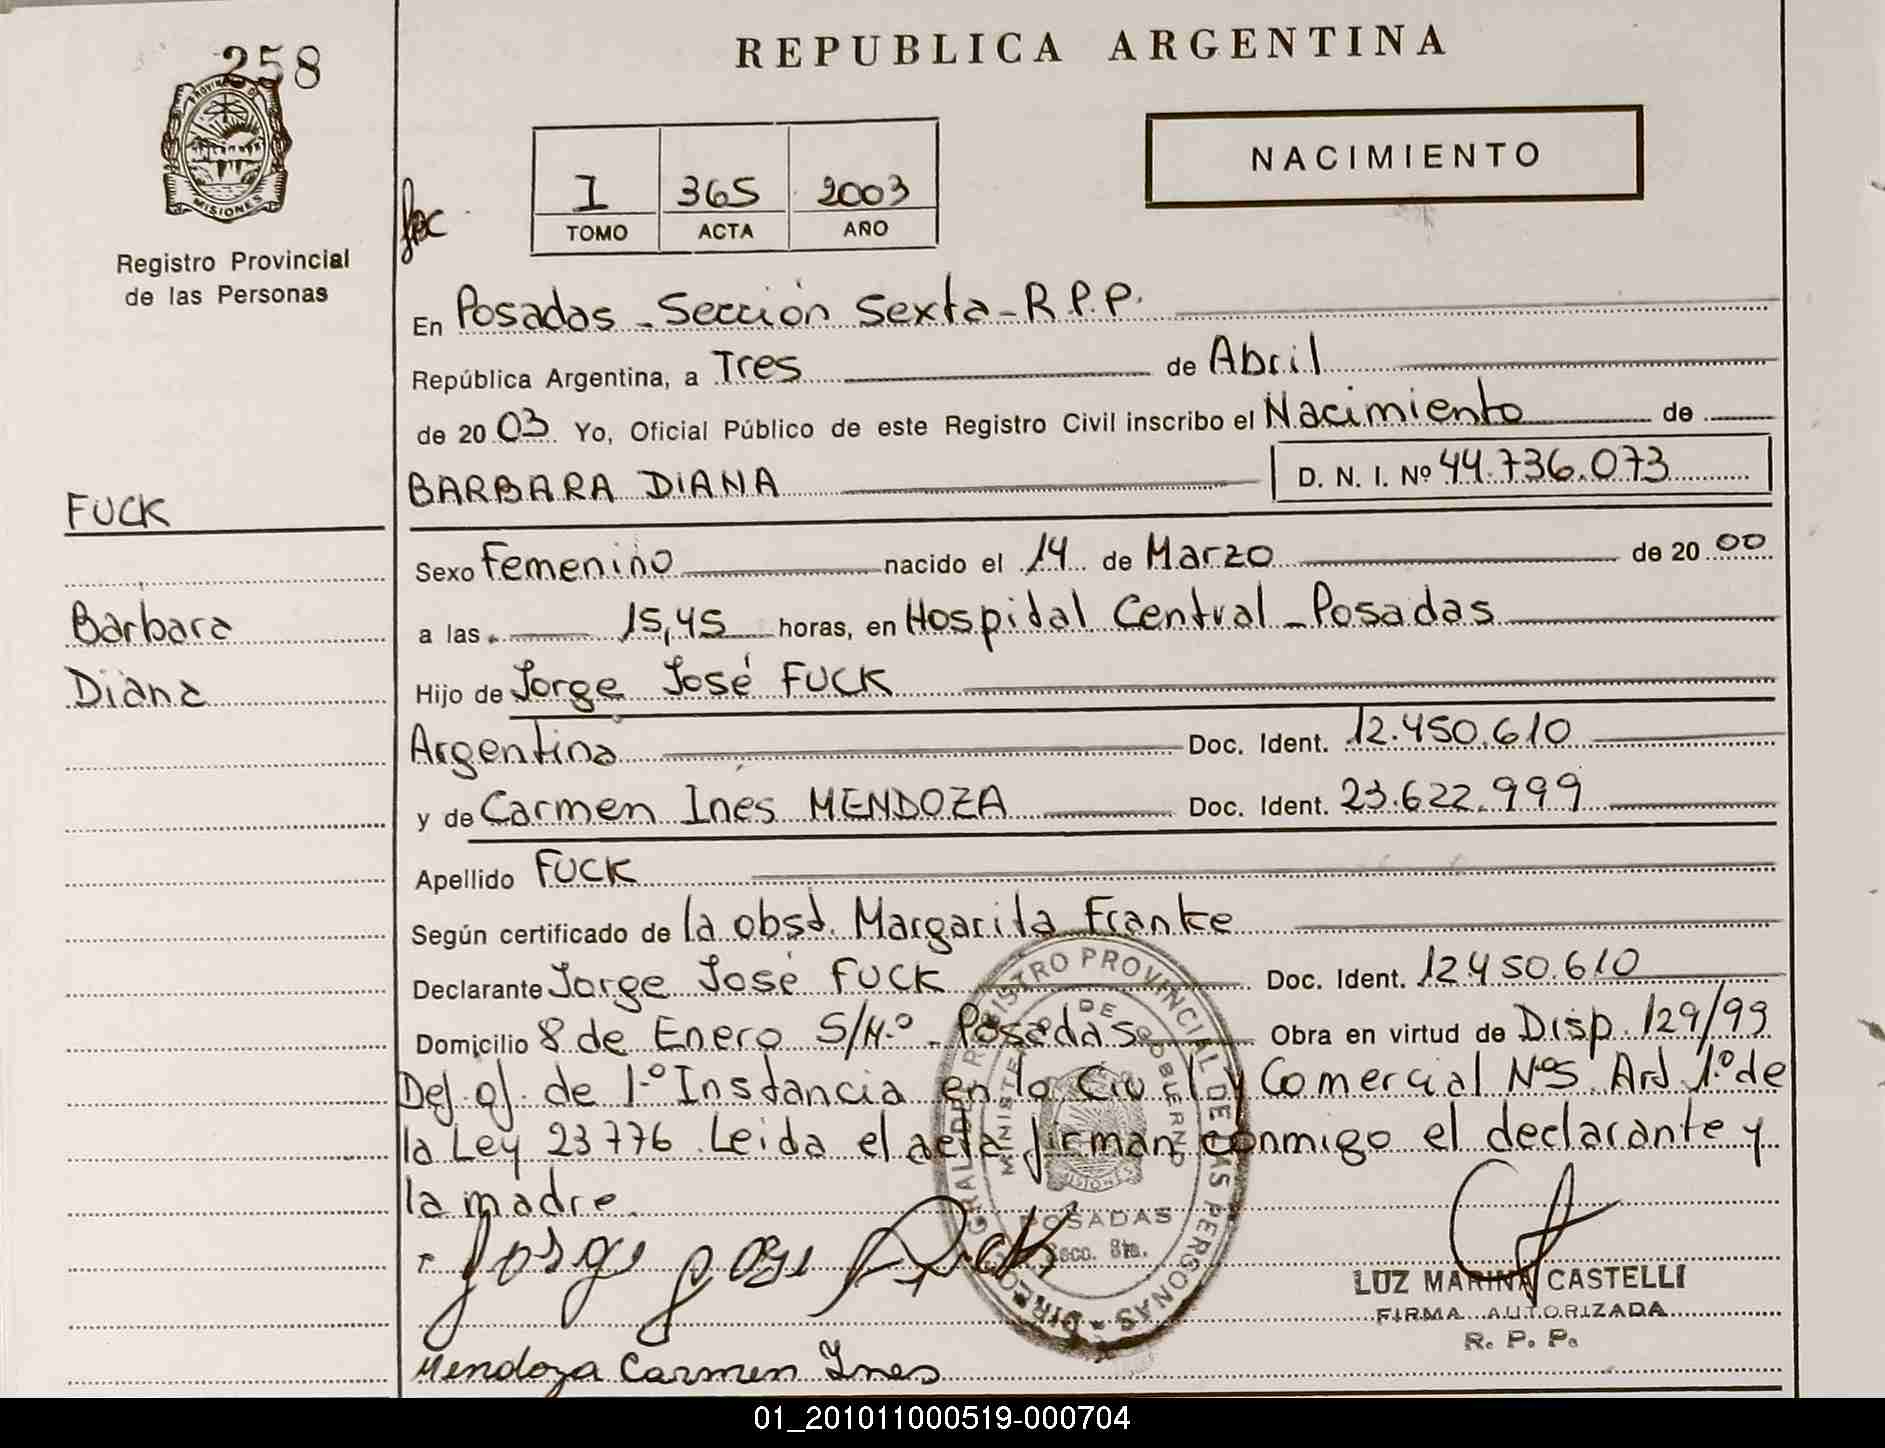 258
REPUBLICA ARGENTINA
PROVINCIA DE
MISIONES
Registro Provincial
de las Personas
NACIMIENTO
I 365 2003
TOMO ACTA AÑO
En Posadas - Sección Sexta - R.P.P.
República Argentina, a Tres de Abril
de 2003 Yo, Oficial Público de este Registro Civil inscribo el Nacimiento de
BARBARA DIANA D. N. I. Nº 44.736.073
FUCK
Barbara
Diana
Sexo Femenino nacido el 14 de Marzo de 2000
a las 15,45 horas, en Hospital Central - Posadas
Hijo de Jorge José FUCK
Argentina Doc. Ident. 12.450.610
y de Carmen Ines MENDOZA Doc. Ident. 23.622.999
Apellido FUCK
Según certificado de la obst. Margarita Franke
Declarante Jorge José FUCK Doc. Ident. 12450.610
Domicilio 8 de Enero S/N.º - Posadas Obra en virtud de Disp. 129/99
de 1.º Instancia en lo Civil y Comercial Nº5 Art 1.º de
la Ley 23776. Leida el acta firman conmigo el declarante y
la madre.
Jorge Jose Fuck
Mendoza Carmen Ines
REGISTRO PROVINCIAL DE LAS PERSONAS
MINISTERIO DE GOBIERNO
MISIONES
POSADAS
Secc. 6ta.
LUZ MARINA CASTELLI
FIRMA AUTORIZADA
R. P. P.
01_201011000519-000704